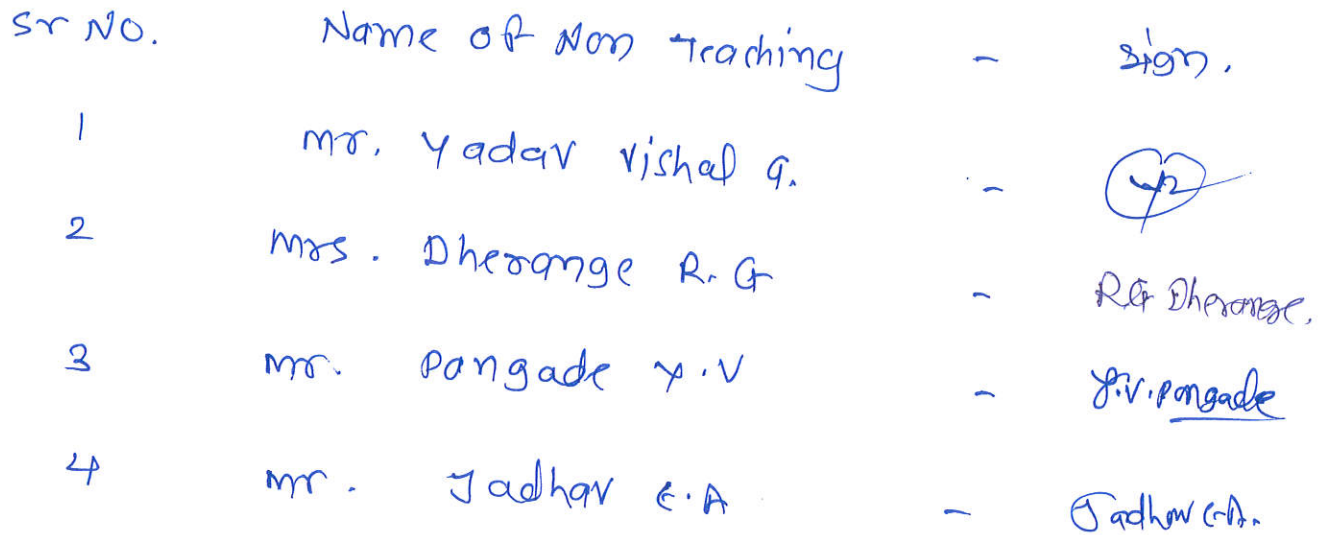 Sr NO. Name of Non Teaching - sign.
1 mr. Yadav Vishal G. -
2 mrs. Dherange R. G - RG Dherange.
3 mr. Pangade Y.V - Y.V.Pangade
4 mr. Jadhav E.A - Jadhav E.A.